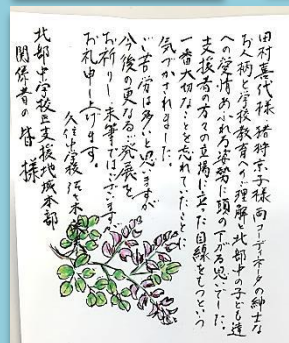 田村真代様 猪狩京子様 両コーディネータの紳士な
お人柄と学校教育へのご理解と北部中の子ども達
への愛情あふれる姿勢に頭の下がる思いでした。
支援者の方々の立場に立った目線をもつという
一番大切なことを忘れていたことに
気づかされました。
ご苦労は多いと思いますが
今後の更なるご発展を
お祈りし、末筆ではございますが
お礼申し上げます。
久住中学校 佐々木
北部中学校区支援地域本部
関係者の皆様